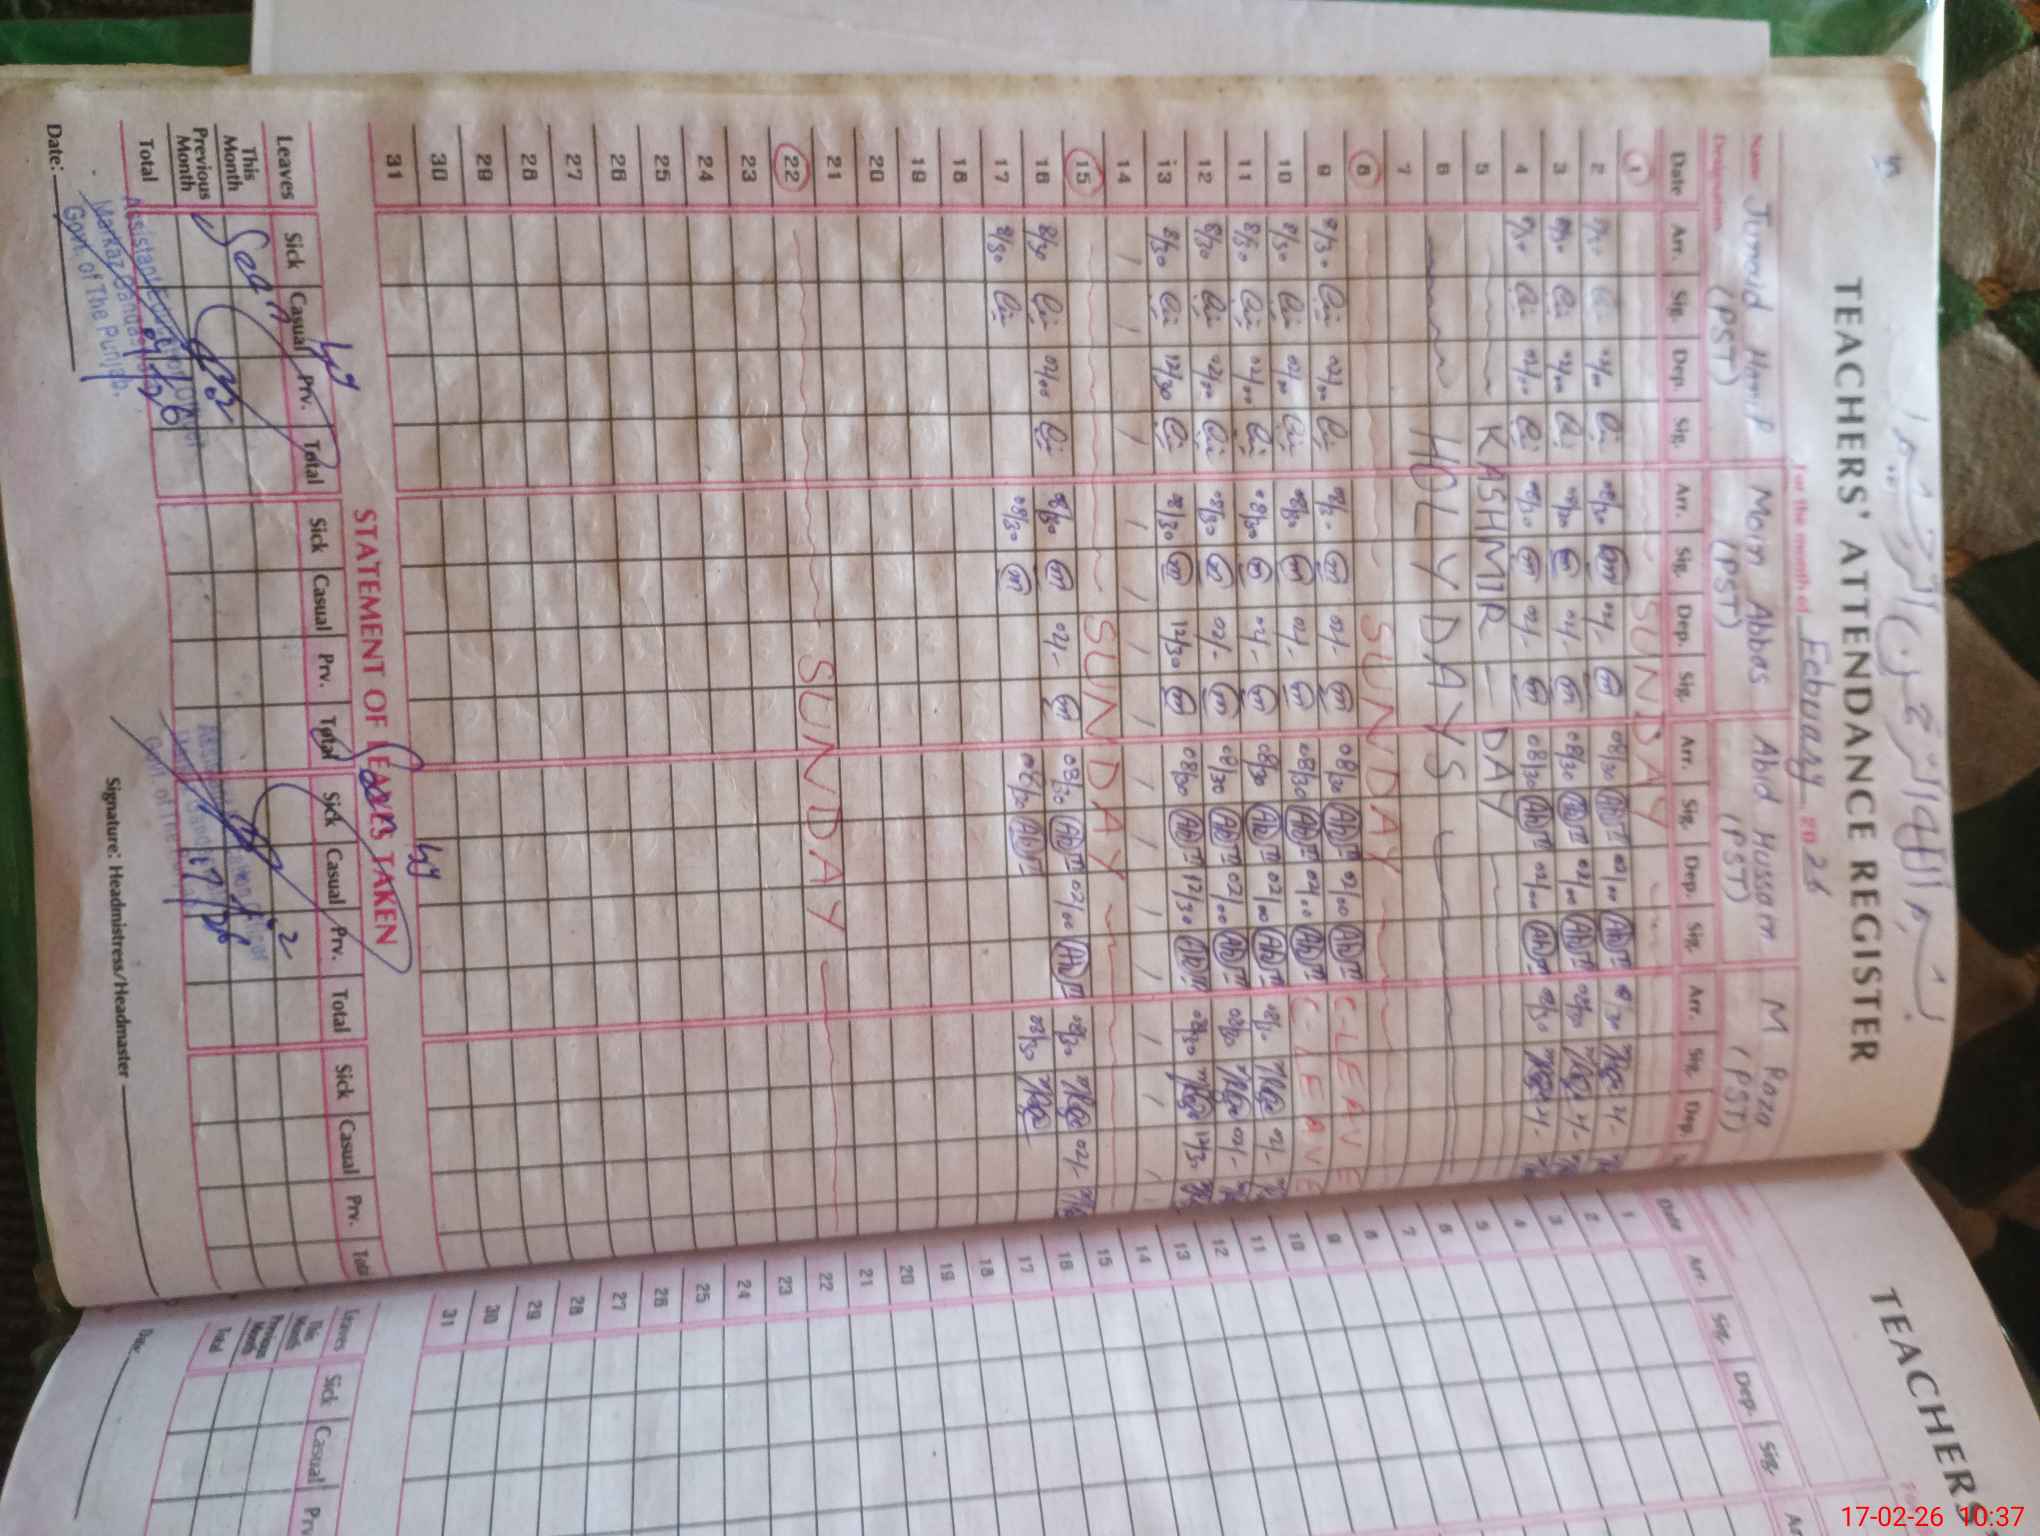 TEACHERS' ATTENDANCE REGISTER
For the month of Febuary 2026
Name Junaid Hanif Moin Abbas Abid Hussain M Raza
Designation (PST) (PST) (PST) (PST)
Date Arr. Sig. Dep. Sig. Arr. Sig. Dep. Sig. Arr. Sig. Dep. Sig. Arr. Sig. Dep.
1 SUNDAY
2 02/00 08/30 02/- 08/30 02/00 2/-
3 02/00 08/30 02/- 08/30 02/00 08/30 2/-
4 02/00 08/30 02/- 08/30 02/00 08/30 2/-
5 KASHMIR - DAY
6 HOLYDAYS
7
8 SUNDAY
9 8/30 02/00 08/30 02/- 08/30 02/00 C-LEAVE
10 8/30 02/00 08/30 02/- 08/30 02/00 C-LEAVE
11 8/30 02/00 08/30 02/- 08/30 02/00 08/30 02/-
12 8/30 02/00 08/30 02/- 08/30 02/00 08/30 02/-
13 8/30 12/30 08/30 12/30 08/30 12/30 08/30 12/30
14
15 SUNDAY
16 8/30 02/00 08/30 02/- 08/30 02/00 08/30 02/-
17 8/30 08/30 08/30 08/30
18
19
20
21
22 SUNDAY
23
24
25
26
27
28
29
30
31
STATEMENT OF LEAVES TAKEN
Leaves Sick Casual Prv. Total Sick Casual Prv. Total Sick Casual Prv. Total Sick Casual Prv. Total
This Month
Previous Month
Total
Seen by
Seen by
Govt. of The Punjab.
Date:
Signature: Headmistress/Headmaster
TEACHERS
Date Arr. Sig. Dep. Sig.
1
2
3
4
5
6
7
8
9
10
11
12
13
14
15
16
17
18
19
20
21
22
23
24
25
26
27
28
29
30
31
Leaves Sick Casual Prv.
This Month
Previous Month
Total
Date:
17-02-26 10:37